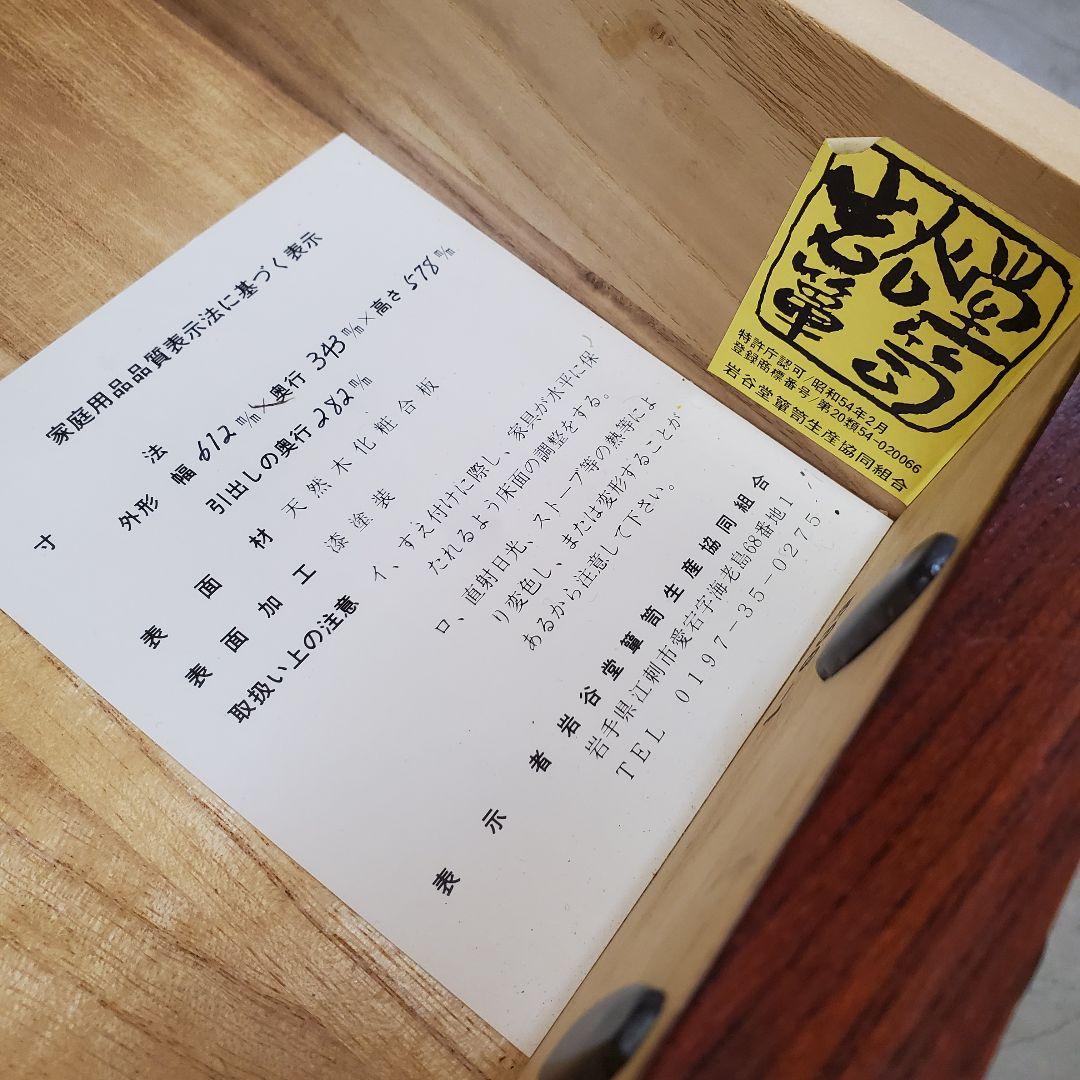 家庭用品品質表示法に基づく表示
寸法 外形 幅 612 m/m × 奥行 343 m/m × 高さ 578 m/m
引出しの奥行 282 m/m
表面材 天然木化粧合板
表面加工 漆塗装
取扱い上の注意 イ、すえ付けに際し、家具が水平に保
たれるよう床面の調整をする。
ロ、直射日光、ストーブ等の熱等によ
り変色し、または変形することが
あるから注意して下さい。
表示者 岩谷堂簞笥生産協同組合
岩手県江刺市愛宕字海老島68番地1
TEL 0197-35-0275
岩谷堂簞笥
特許庁認可/昭和54年2月
登録商標番号/第20類54-020066
岩谷堂簞笥生産協同組合